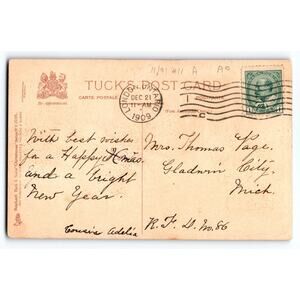 11/91 #11 A
TUCK'S POST CARD
CARTE POSTALE
By appointment.
LONDON, ONTARIO
DEC 21
11-AM
1909
With best wishes
for a Happy Xmas.
and a bright
New Year.
Cousin Adelia
Mrs. Thomas Page.
Gladwin City.
Mich.
R.F.D. No. 86